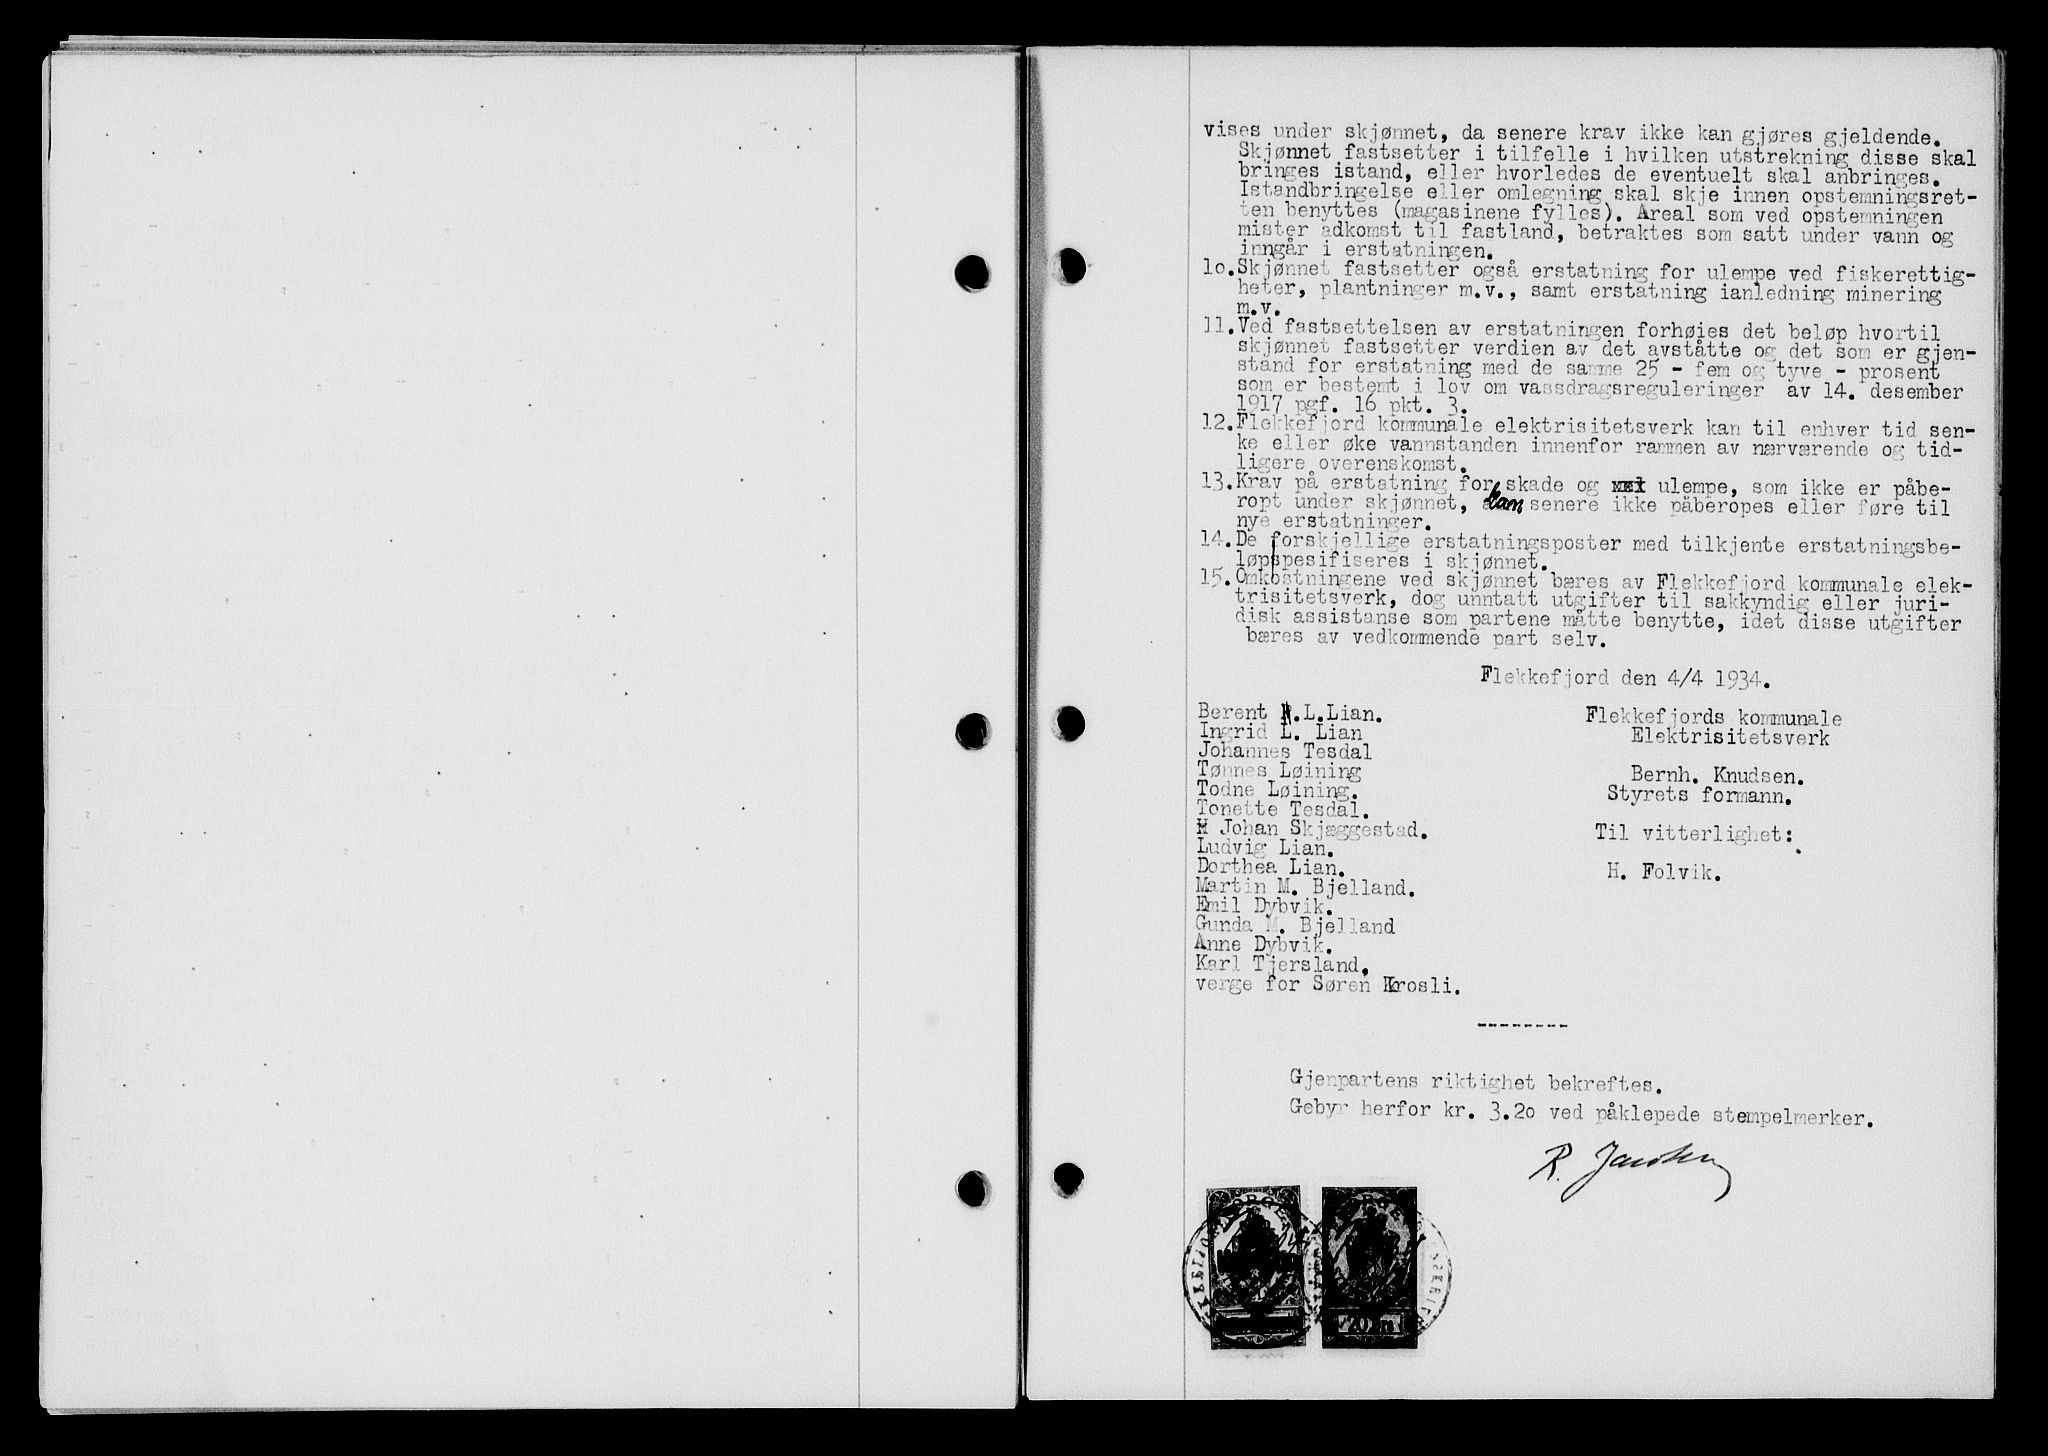 vises under skjønnet, da senere krav ikke kan gjøres gjeldende.
Skjønnet fastsetter i tilfelle i hvilken utstrekning disse skal
bringes istand, eller hvorledes de eventuelt skal anbringes.
Istandbringelse eller omlegning skal skje innen opstemningsret-
ten benyttes (magasinene fylles). Areal som ved opstemningen
mister adkomst til fastland, betraktes som satt under vann og
inngår i erstatningen.
10. Skjønnet fastsetter også erstatning for ulempe ved fiskerettig-
heter, plantninger m.v., samt erstatning ianledning minering
m.v.
11. Ved fastsettelsen av erstatningen forhøies det beløp hvortil
skjønnet fastsetter verdien av det avståtte og det som er gjen-
stand for erstatning med de samme 25 - fem og tyve - prosent
som er bestemt i lov om vassdragsreguleringer av 14. desember
1917 pgf. 16 pkt. 3.
12. Flekkefjord kommunale elektrisitetsverk kan til enhver tid sen-
ke eller øke vannstanden innenfor rammen av nærværende og tid-
ligere overenskomst.
13. Krav på erstatning for skade og ulempe, som ikke er påbe-
ropt under skjønnet, kan senere ikke påberopes eller føre til
nye erstatninger.
14. De forskjellige erstatningsposter med tilkjente erstatningsbe-
løp spesifiseres i skjønnet.
15. Omkostningene ved skjønnet bæres av Flekkefjord kommunale elek-
trisitetsverk, dog unntatt utgifter til sakkyndig eller juri-
disk assistanse som partene måtte benytte, idet disse utgifter
bæres av vedkommende part selv.
Flekkefjord den 4/4 1934.
Berent N.L.Lian.
Ingrid L. Lian
Johannes Tesdal
Tønnes Løining
Todne Løining.
Tonette Tesdal.
Johan Skjæggestad.
Ludvig Lian.
Dorthea Lian.
Martin M. Bjelland.
Emil Dybvik.
Gunda M. Bjelland
Anne Dybvik.
Karl Tjersland,
verge for Søren Krosli.
Flekkefjords kommunale
Elektrisitetsverk
Bernh. Knudsen.
Styrets formann.
Til vitterlighet:
H. Folvik.
---------
Gjenpartens riktighet bekreftes.
Gebyr herfor kr. 3.20 ved påklepede stempelmerker.
R. Jacobsen